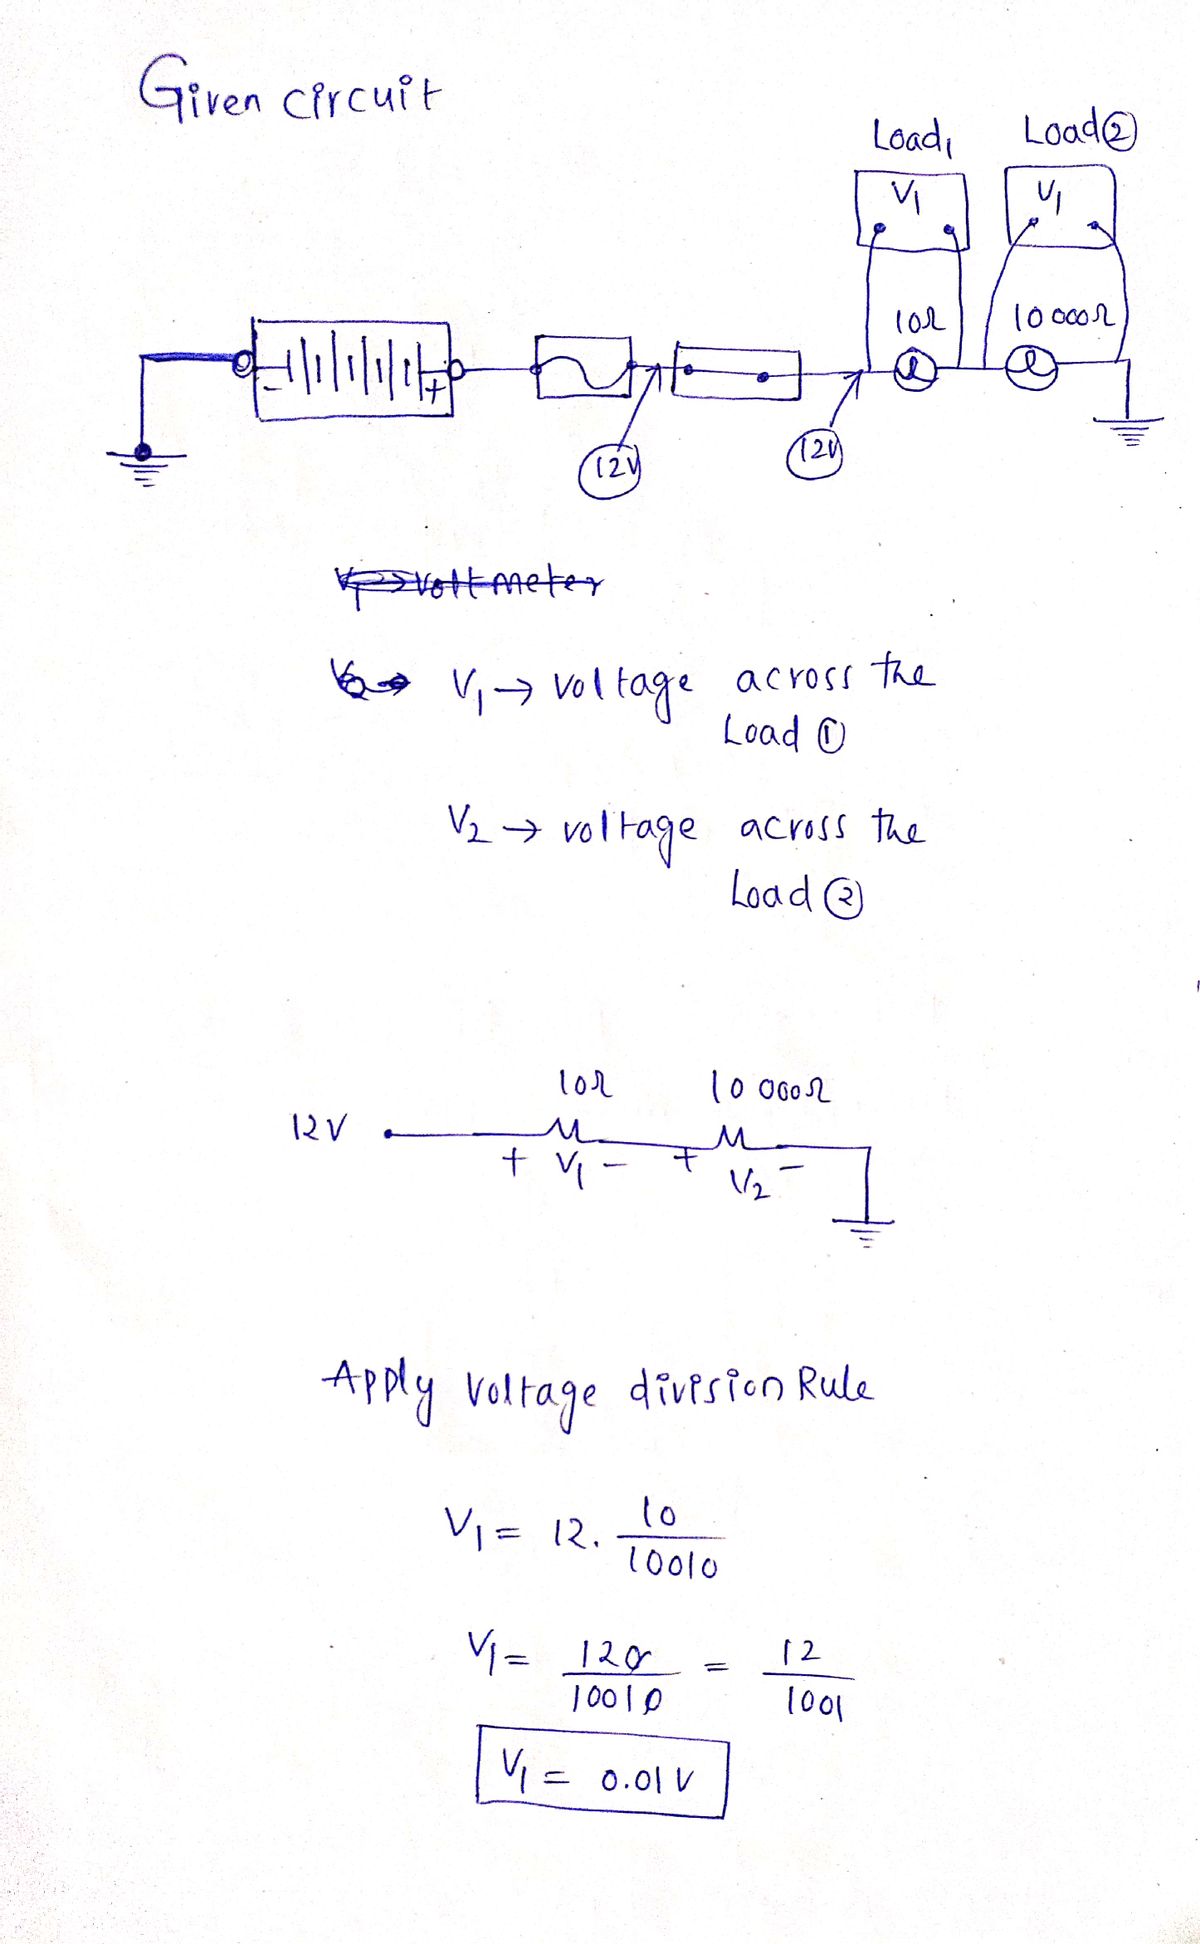 Given circuit
Load1 Load②
V1 V1
10Ω 10 000Ω
- +
12V 12V
V1→voltmeter
V1→ voltage across the
Load ①
V2 → voltage across the
Load ②
10Ω 10 000Ω
12V
+ V1 - + V2 -
Apply voltage division Rule
V1 = 12. 10/10010
V1 = 120/10010 = 12/1001
V1 = 0.01 V